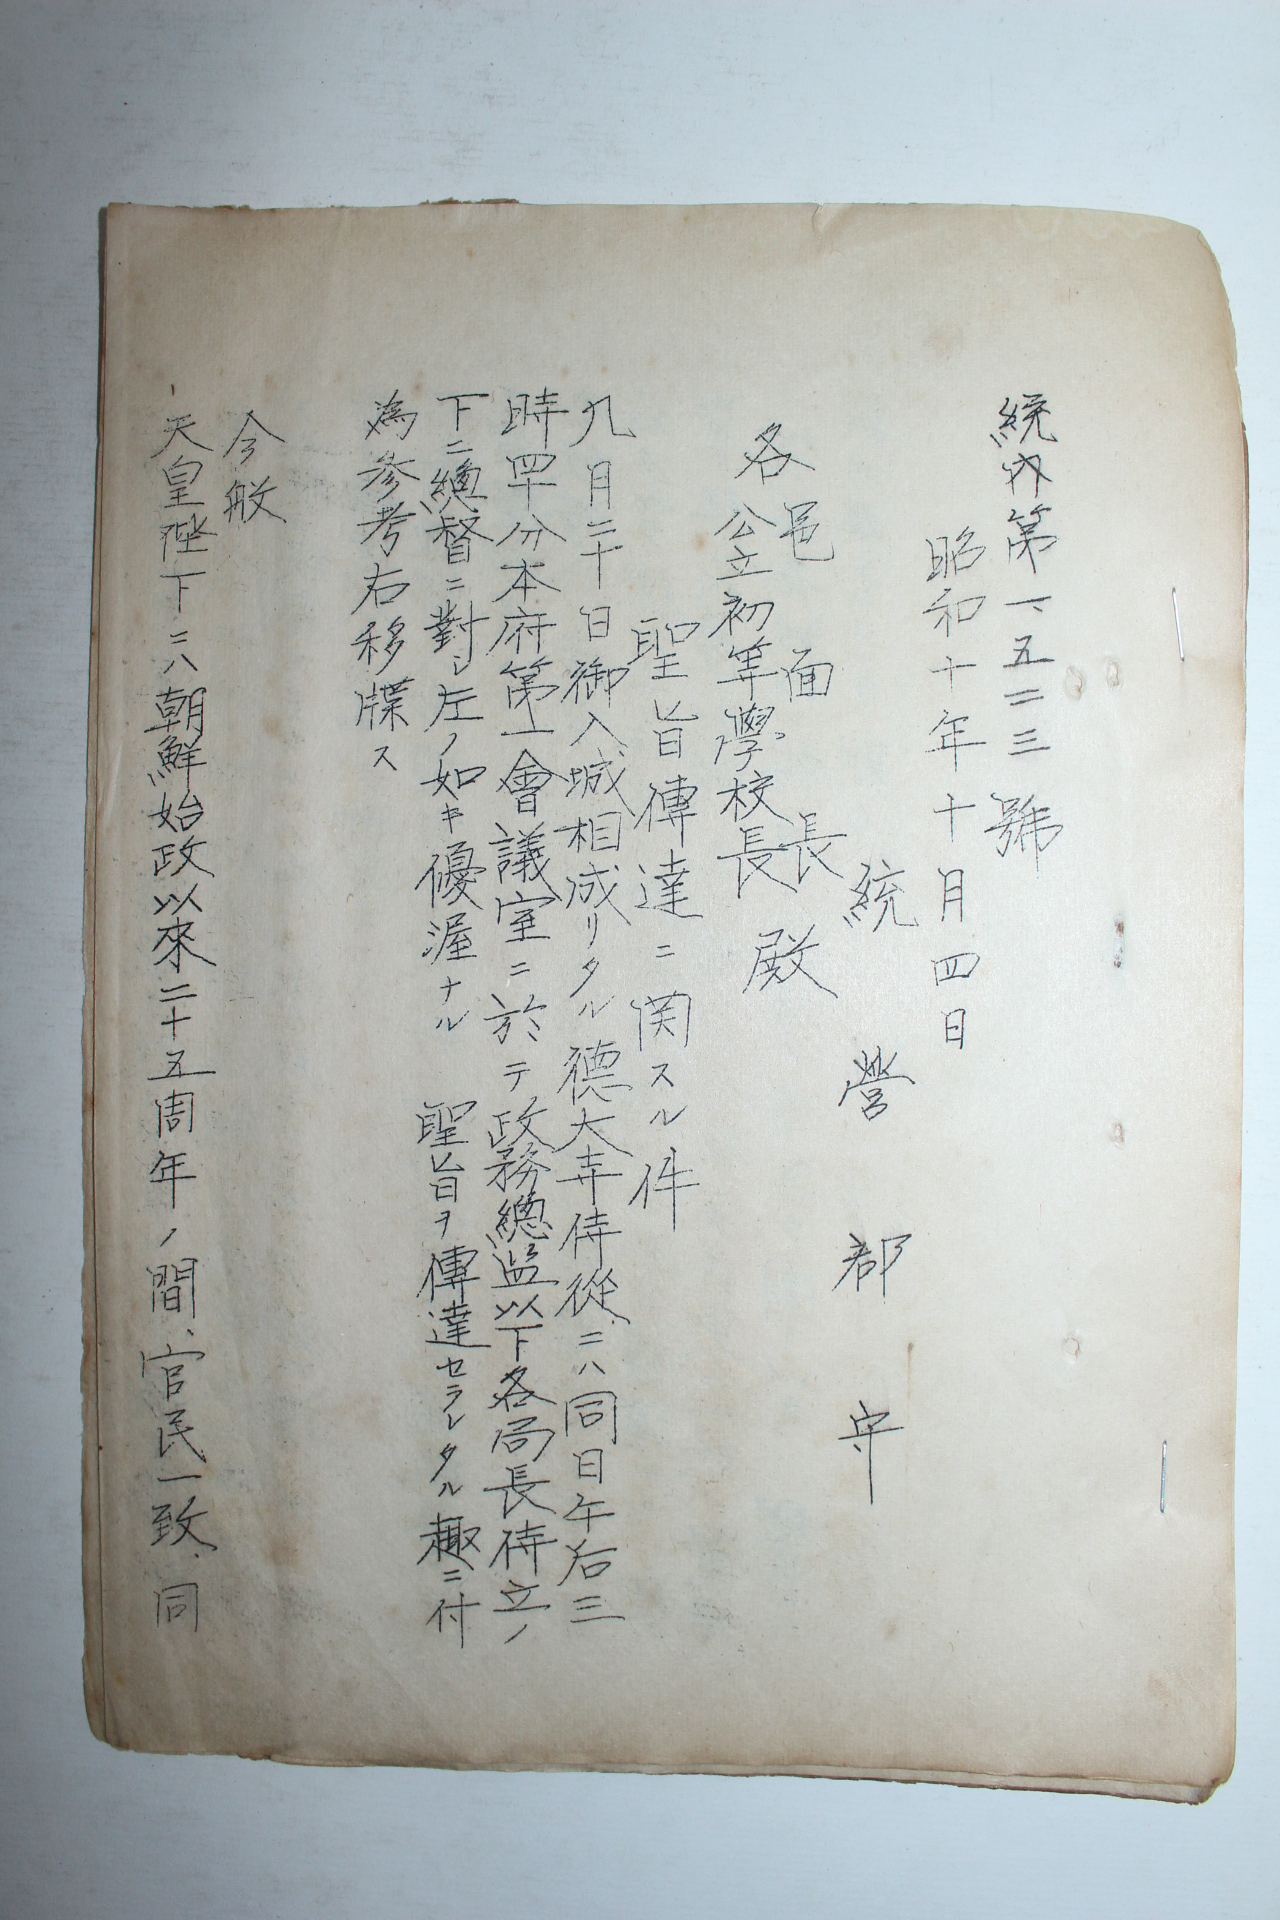 統內第一、五二三號
昭和十年十月四日
統營郡守
各邑面長
公立初等學校長殿
聖旨傳達ニ関スル件
九月二十日御入城相成リタル德大寺侍從ニハ同日午后三
時四十分本府第一會議室ニ於テ政務總監以下各局長侍立ノ
下ニ總督ニ對シ左ノ如キ優渥ナル 聖旨ヲ傳達セラレタル趣ニ付
為參考右移牒ス
今般
天皇陛下ニハ朝鮮始政以來二十五周年ノ間、官民一致、同